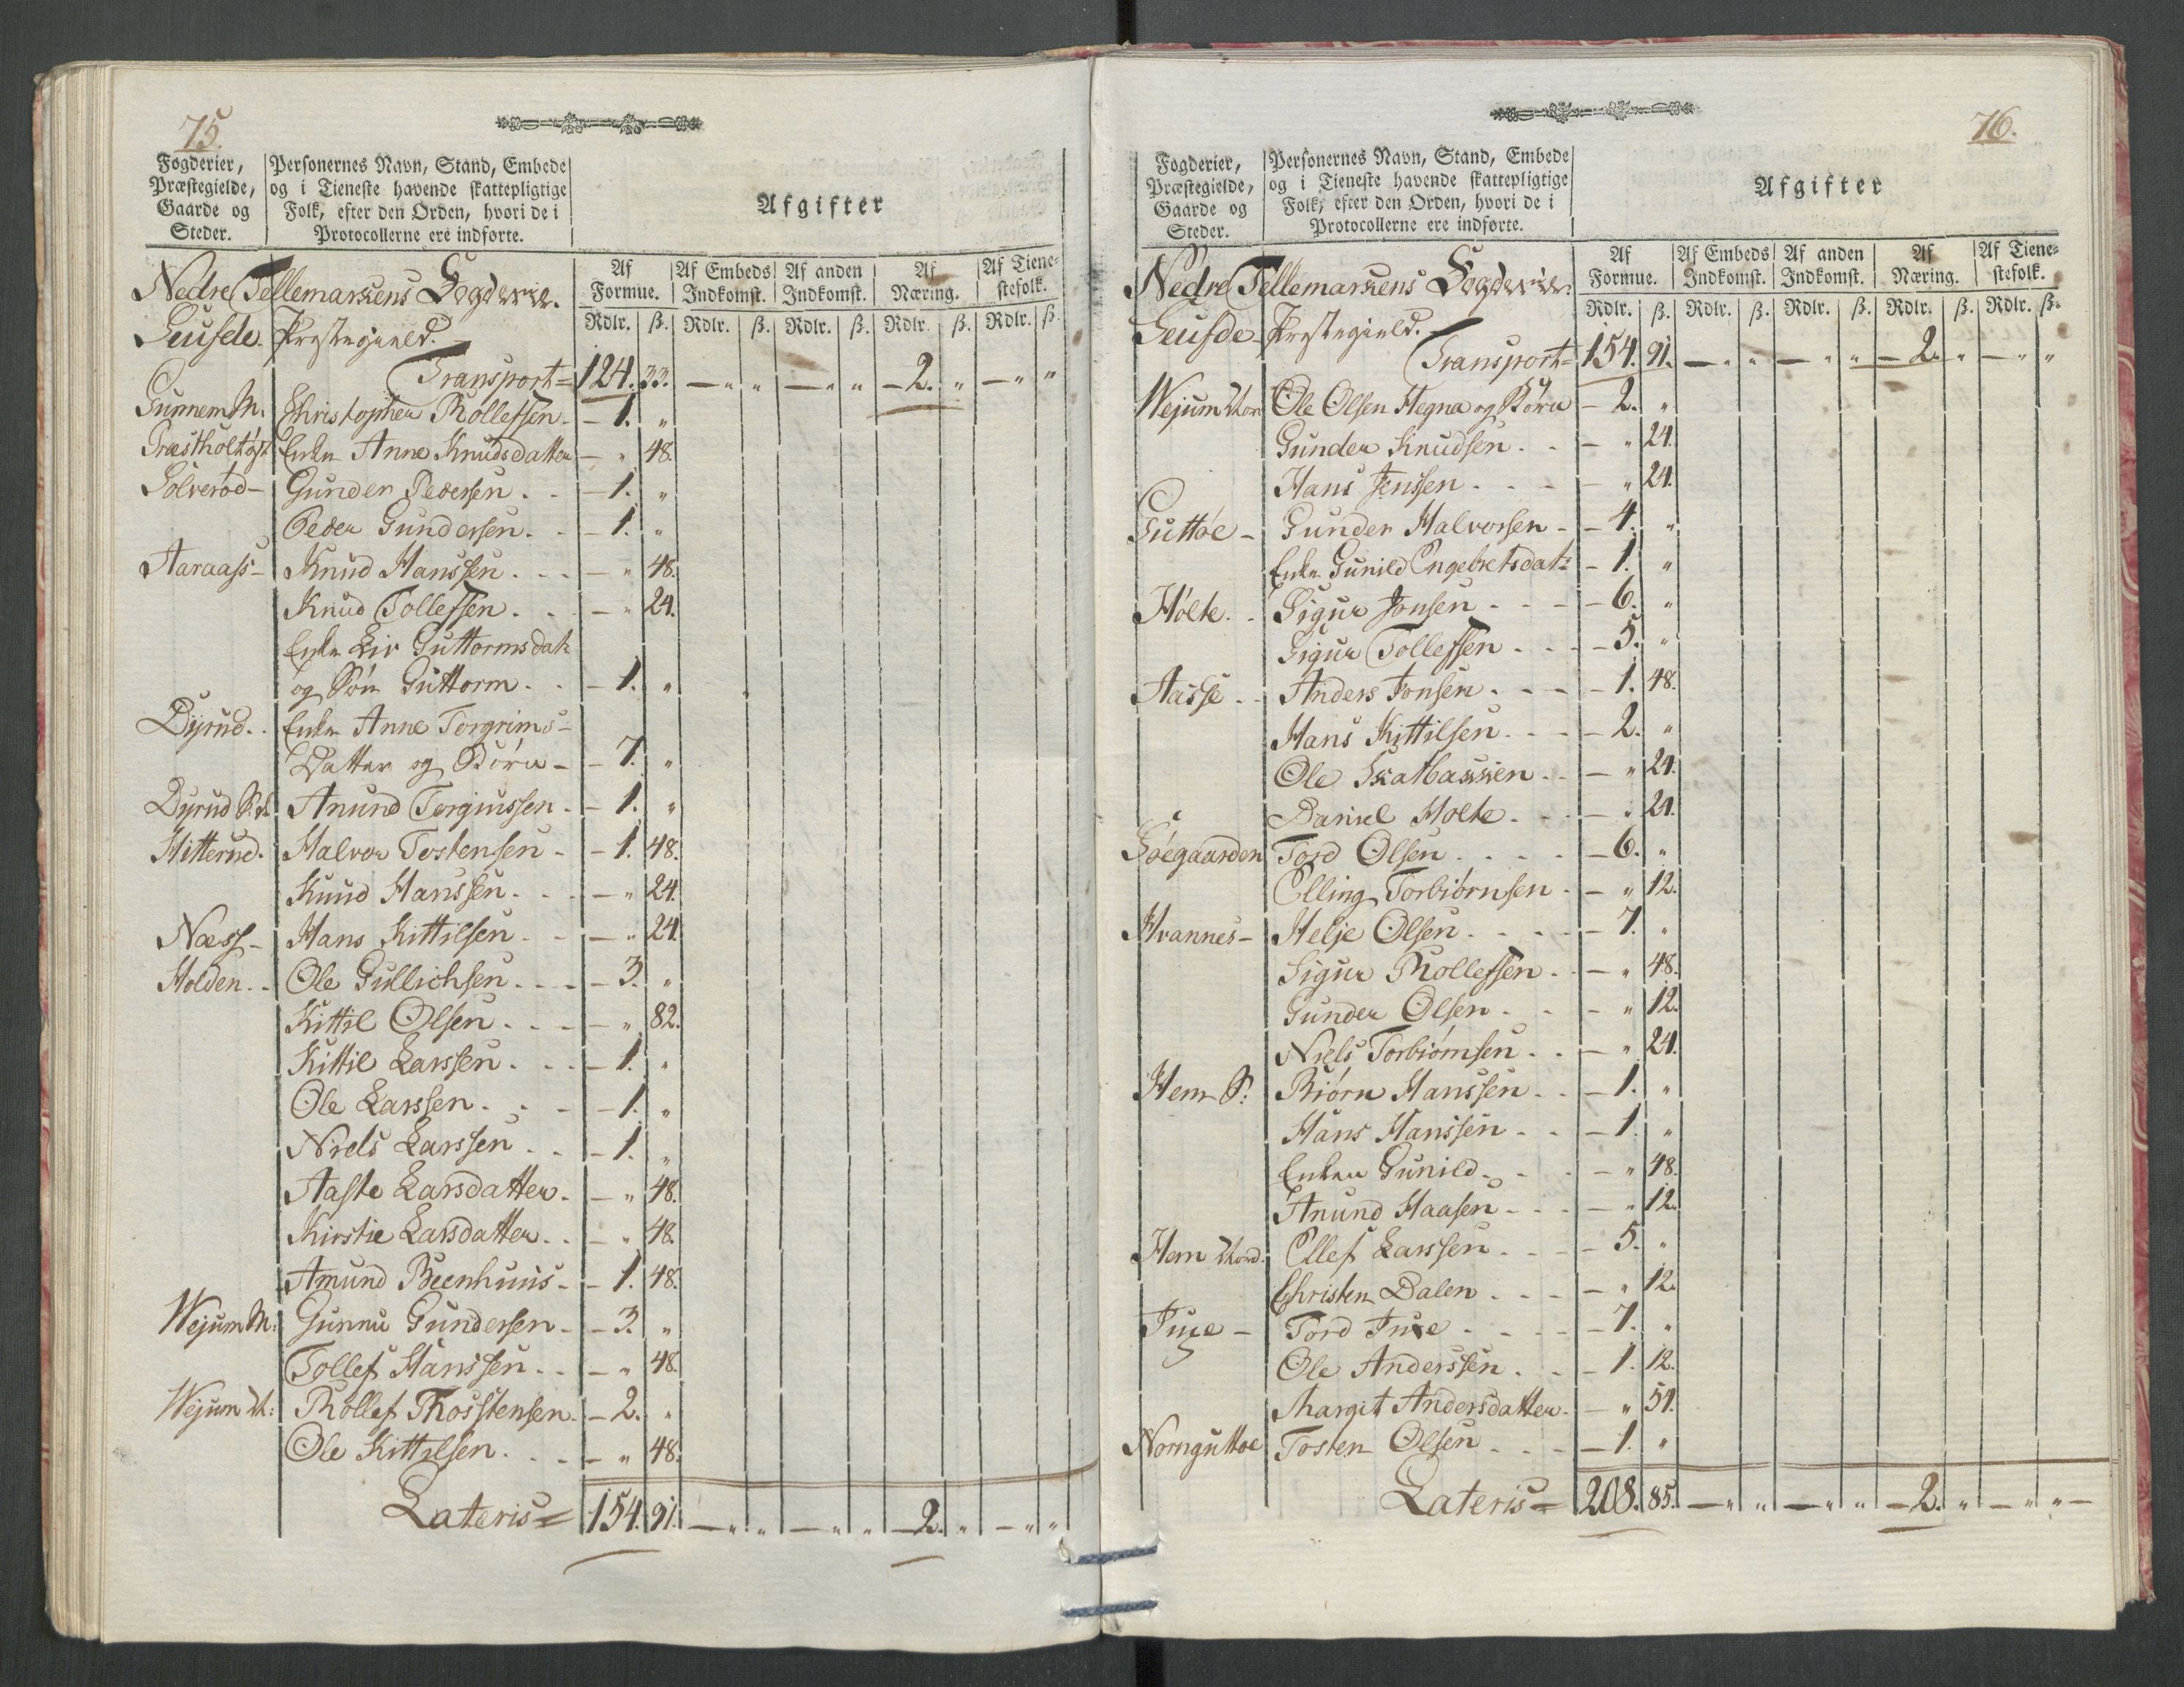 75.
Fogderier, Præstegielde, Gaarde og Steder.
Personernes Navn, Stand, Embede og i Tieneste havende skattepligtige Folk, efter den Orden, hvori de i Protocollerne ere indførte.
Afgifter
Af Formue. Af Embeds Indkomst. Af anden Indkomst. Af Næring. Af Tienestefolk.
Rdlr. ß. Rdlr. ß. Rdlr. ß. Rdlr. ß. Rdlr. ß.
Nedre Tellemarkens Fogderie.
Seufde Præstegield.
Transport = 124. 33. — „ „ — „ „ — 2. „ — „ „
Gunnem M. Christopher Rollefsen — 1. „
Græstholt øst Enke Anne Knudsdatter — „ 48.
Sølverød — Gunder Pedersen . . — 1. „
Peder Gundersen . — 1. „
Aaraass — Knud Hanssen . . . — „ 48.
Knud Tollefsen . . . — „ 24.
Enke Liv Guttormsdatr
og Søn Guttorm . . — 1. „
Dyrud . Enke Anne Torgrims-
Datter og Børn — — 7. „
Dyrud S. Anund Torgiussen . — 1. „
Hitterud . Halvor Tostensen — — 1. 48.
Knud Hanssen . . . — „ 24.
Næss — Hans Kittilsen . . — „ 24.
Holden . . Ole Gullichsen . . . — 3. „
Kittil Olsen . . . — „ 82.
Kittil Larssen . . . — 1. „
Ole Larssen . . . — 1. „
Niels Larssen . . — 1. „
Aaste Larsdatter . — „ 48.
Kirstie Larsdatter . . — „ 48.
Amund Beenhuus — — 1. 48.
Wejum M: Gunnu Gundersen — — 3. „
Tollef Hanssen . . — „ 48.
Wejum N: Rollef Thosstensen . — 2. „
Ole Kittilsen . . . — „ 48.
Lateris = 154. 91. — „ „ — „ „ — 2. „ — „ „
76.
Fogderier, Præstegielde, Gaarde og Steder.
Personernes Navn, Stand, Embede og i Tieneste havende skattepligtige Folk, efter den Orden, hvori de i Protocollerne ere indførte.
Afgifter
Af Formue. Af Embeds Indkomst. Af anden Indkomst. Af Næring. Af Tienestefolk.
Rdlr. ß. Rdlr. ß. Rdlr. ß. Rdlr. ß. Rdlr. ß.
Nedre Tellemarkens Fogderie.
Seufde Præstegield.
Transport = 154. 91. — „ „ — „ „ — 2. „ — „ „
Wejum Nor Ole Olsen Hegna og Børn — 2. „
Gunder Knudsen . . — „ 24.
Hans Jenssen . . . — „ 24.
Guttøe — Gunder Halvorsen — — 4. „
Enke Gunild Engebretsdatr — 1. „
Holte . . Sigur Jonsen . . . — 6. „
Sigur Tollefsen . . . — 5. „
Aasse . . Anders Jonsen . . . — 1. 48.
Hans Kittilsen . . . — 2. „
Ole Skatbakken . . — „ 24.
Daniel Holte . . . — „ 24.
Søegaarden Tord Olsen . . . . — 6. „
Elling Torbiørnsen . — „ 12.
Hvannes — Helje Olsen . . . . — 7. „
Sigur Rollefsen . . — „ 48.
Gunder Olsen . . — „ 12.
Niels Torbiørnsen . . — „ 24.
Hem S: Biørn Hanssen . . — 1. „
Hans Hanssen . . — 1. „
Enken Gunild . . . — „ 48.
Anund Haasen . . . — „ 12.
Hem Nord. Ellef Larssen . . . — 5. „
Christen Dalen . . . — „ 12.
Juve — Tord Juve . . . . — 7. „
Ole Anderssen . . . — 1. 12.
Margit Andersdatter . — „ 54.
Nornguttoe Tosten Olsen . . . — 1. „
Lateris = 208. 85. — „ „ — „ „ — 2. „ — „ „ —